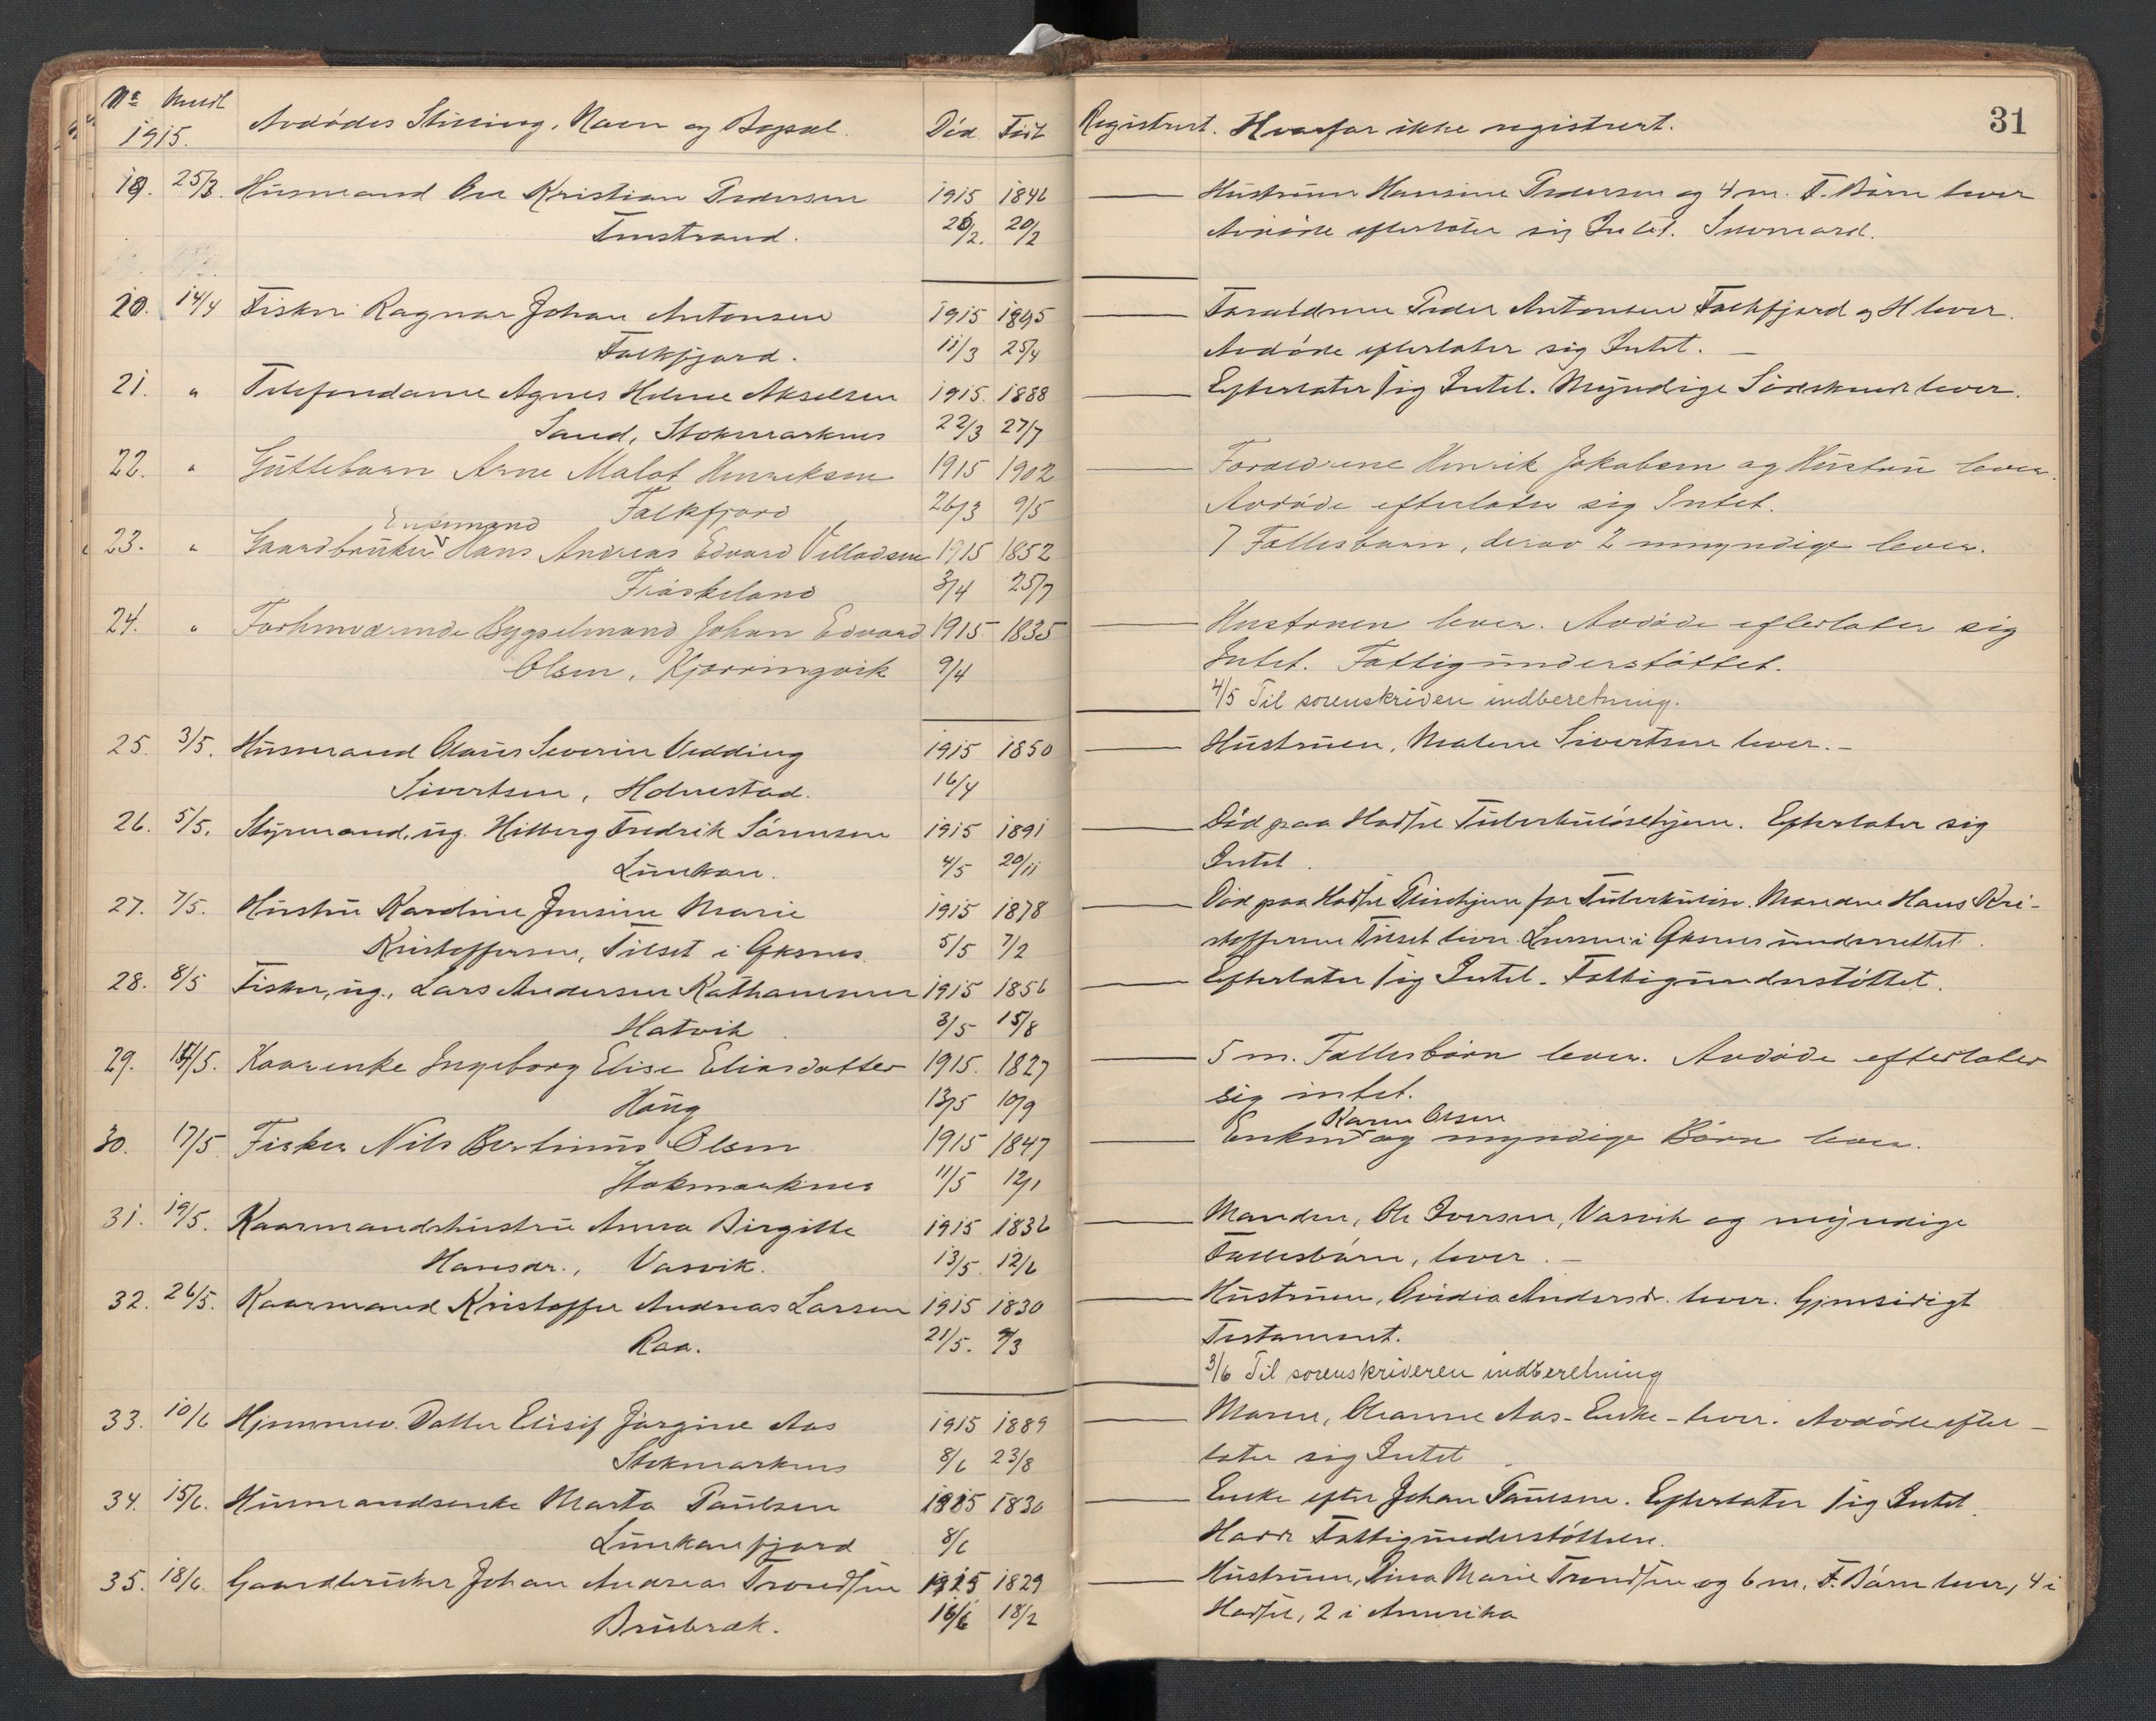 31
Nº Meldt Avdødes Stilling, Navn og Bopæl. Død Født Registrert. Hvorfor ikke registrert.
1915.
19. 25/3. Husmand Ole Kristian Pedersen 1915 1846 Hustruen Hansine Pedersen og 4 m. F. Børn lever
20/2 Avdøde efterlater sig Intet.
20. 14/4 Fisker Ragnar Johan Antonsen 1915 1895 Forældrene Peder Antonsen Falkfjord og H lever.
Falkfjord. 11/3 25/4 Avdøde efterlater sig Intet. –
21. " Telefondame Agnes Helene Akselsen 1915. 1888 Efterlater sig Intet. Myndige Sødskende lever.
Sand, Stokmarknes 22/3 27/7
22. " Guttebarn Arne Malot Henriksen 1915 1902 Forældrene Henrik Jakobsen og Hustru lever.
Falkfjord 26/3 9/5 Avdøde efterlater sig Intet.
Enkemand
23. " Gaardbruker Hans Andreas Edvard Villadsen 1915 1852 7 Fællesbarn, derav 2 umyndige lever.
Frøskeland 3/4 25/7
24. " Forhenværende Bygselmand Johan Edvard 1915 1835 Hustruen lever. Avdøde efterlater sig
Olsen, Kjørringvik 9/4 Intet. Fattigunderstøttet.
4/5 Til sorenskriveren indberetning.
25. 3/5. Husmand Olaus Severin Vedding 1915 1850 Hustruen, Malene Sivertsen lever. –
Sivertsen, Holmestad. 16/4
26. 5/5. Styrmand, ug. Hilberg Fredrik Sørensen 1915 1891 Død paa Hadsel Tuberkuløsehjem. Efterlater sig
Lunkan. 4/5 20/11 Intet.
27. 7/5. Hustru Karoline Jensine Marie 1915 1878 Død paa Hadsel Pleiehjem for Tuberkuløse. Manden Hans Kri-
Kristoffersen, Tilset i Øksnes. 5/5 7/2 stoffersen Tilset lever. Lensm. i Øksnes underrettet.
28. 8/5 Fisker, ug., Lars Andersen 1915 1856 Efterlater sig Intet. Fattigunderstøttet.
Hatvik 3/5 15/8
29. 15/5. Kaarenke Ingeborg Elise Eliasdatter 1915. 1827 5 m. Fællesbørn lever. Avdøde efterlater
Haug 13/5 10/9 sig intet.
Karen Olsen
30. 17/5 Fisker Nils Bertinus Olsen 1915 1847 Enken og myndige Børn lever.
Stokmarknes 11/5 12/1
31. 19/5. Kaarmandshustru Anna Birgitte 1915 1836 Manden, Ole Iversen, Vasvik og myndige
Hansdr., Vasvik. 13/5. 12/6 Fællesbørn, lever. –
32. 26/5. Kaarmand Kristoffer Andreas Larsen 1915 1830 Hustruen, Ovidia Andersdr. lever. Gjensidigt
Raa. 21/5. 9/3 Testament.
3/6 Til sorenskriveren indberetning
33. 10/6 Hjemmev. Datter Elisif Jørgine Aas 1915 1889 Moren, Oleanne Aas – Enke – lever. Avdøde efter –
Stokmarknes 8/6 23/8 later sig Intet.
34. 15/6. Husmandsenke Marta Paulsen 1915 1830 Enke efter Johan Paulsen. Efterlater sig Intet.
Lunkanfjord 8/6 Havde Fattigunderstøttelse.
35. 18/6. Gaardbruker Johan Andreas Trondsen 1915 1829 Hustruen, Dina Marie Trondsen og 6 m. F. Børn lever, 4 i
Brubræk. 16/6 18/2 Hadsel, 2 i Amerika